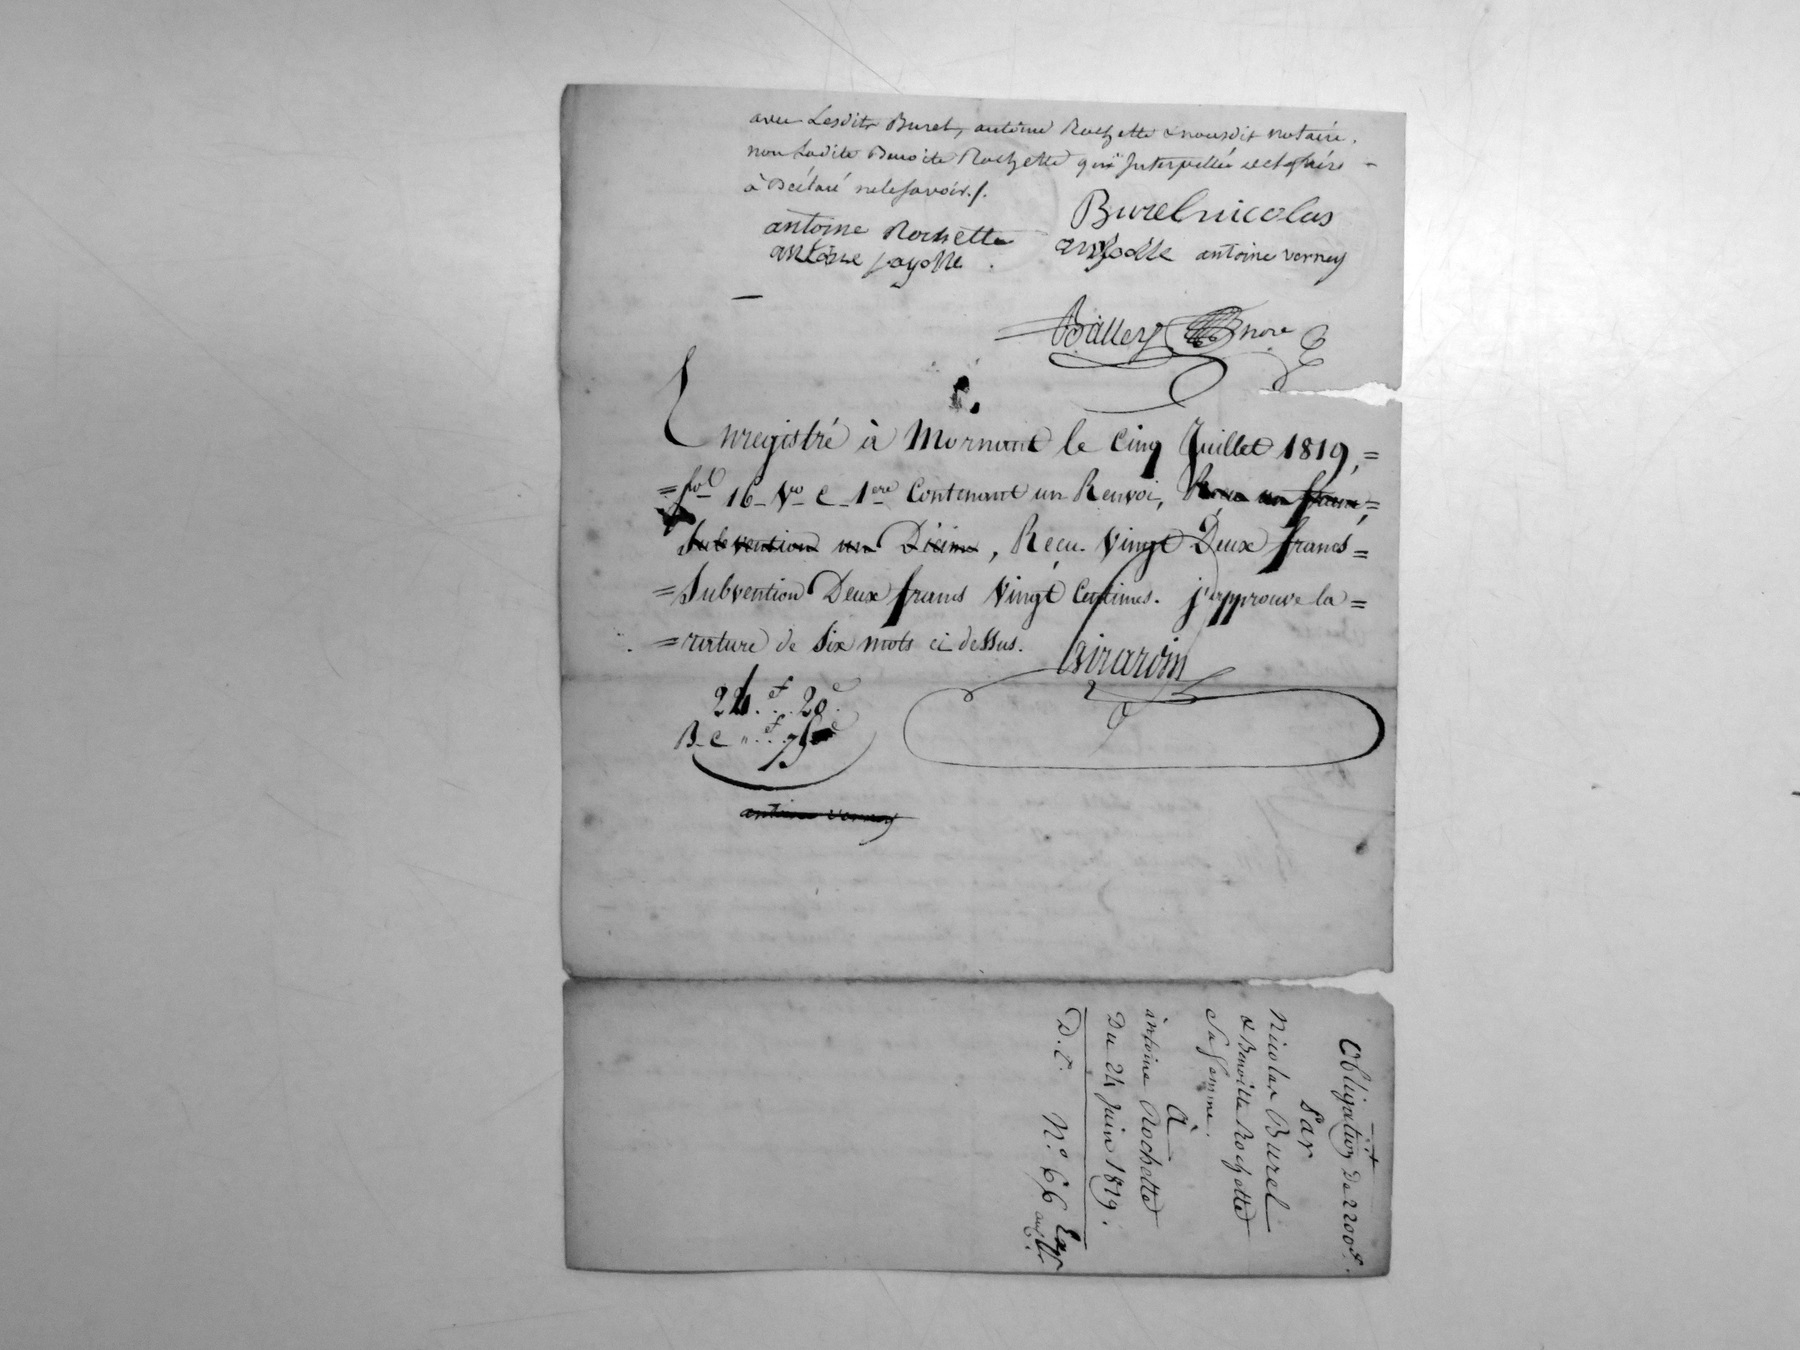 avec Lesdits Burel, antoine Rochette & nousdit notaire.
non Ladite Benoite Rochette qui Interpellée
à Déclaré ne le savoir ./.
antoine Rochette
Burel nicolas
antoine fayolle
antoine verney
Ballet nore
Enregistré à Mornant le Cinq Juillet 1819, =
= fol 16 Vo C 1ere Contenant un Renvoi, Recu un franc =
Subvention un Dixime, Reçu Vingt Deux francs =
= Subvention Deux francs Vingt Centimes. j'approuve la =
= rature de Six mots ci dessus.
Girardin
24.f 20c
B. C ".f 75c
antoine verney
Obligation de 2200f.
Par
Nicolas Burel
& Benoitte Rochette
Sa femme.
à
antoine Rochette
Du 24 Juin 1819.
D. C. N.o 66 Exp